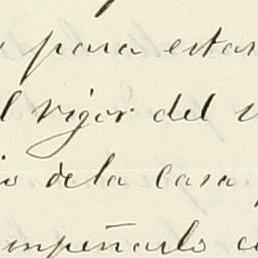 para estas
l rigor del
io dela casa
empeñarlo